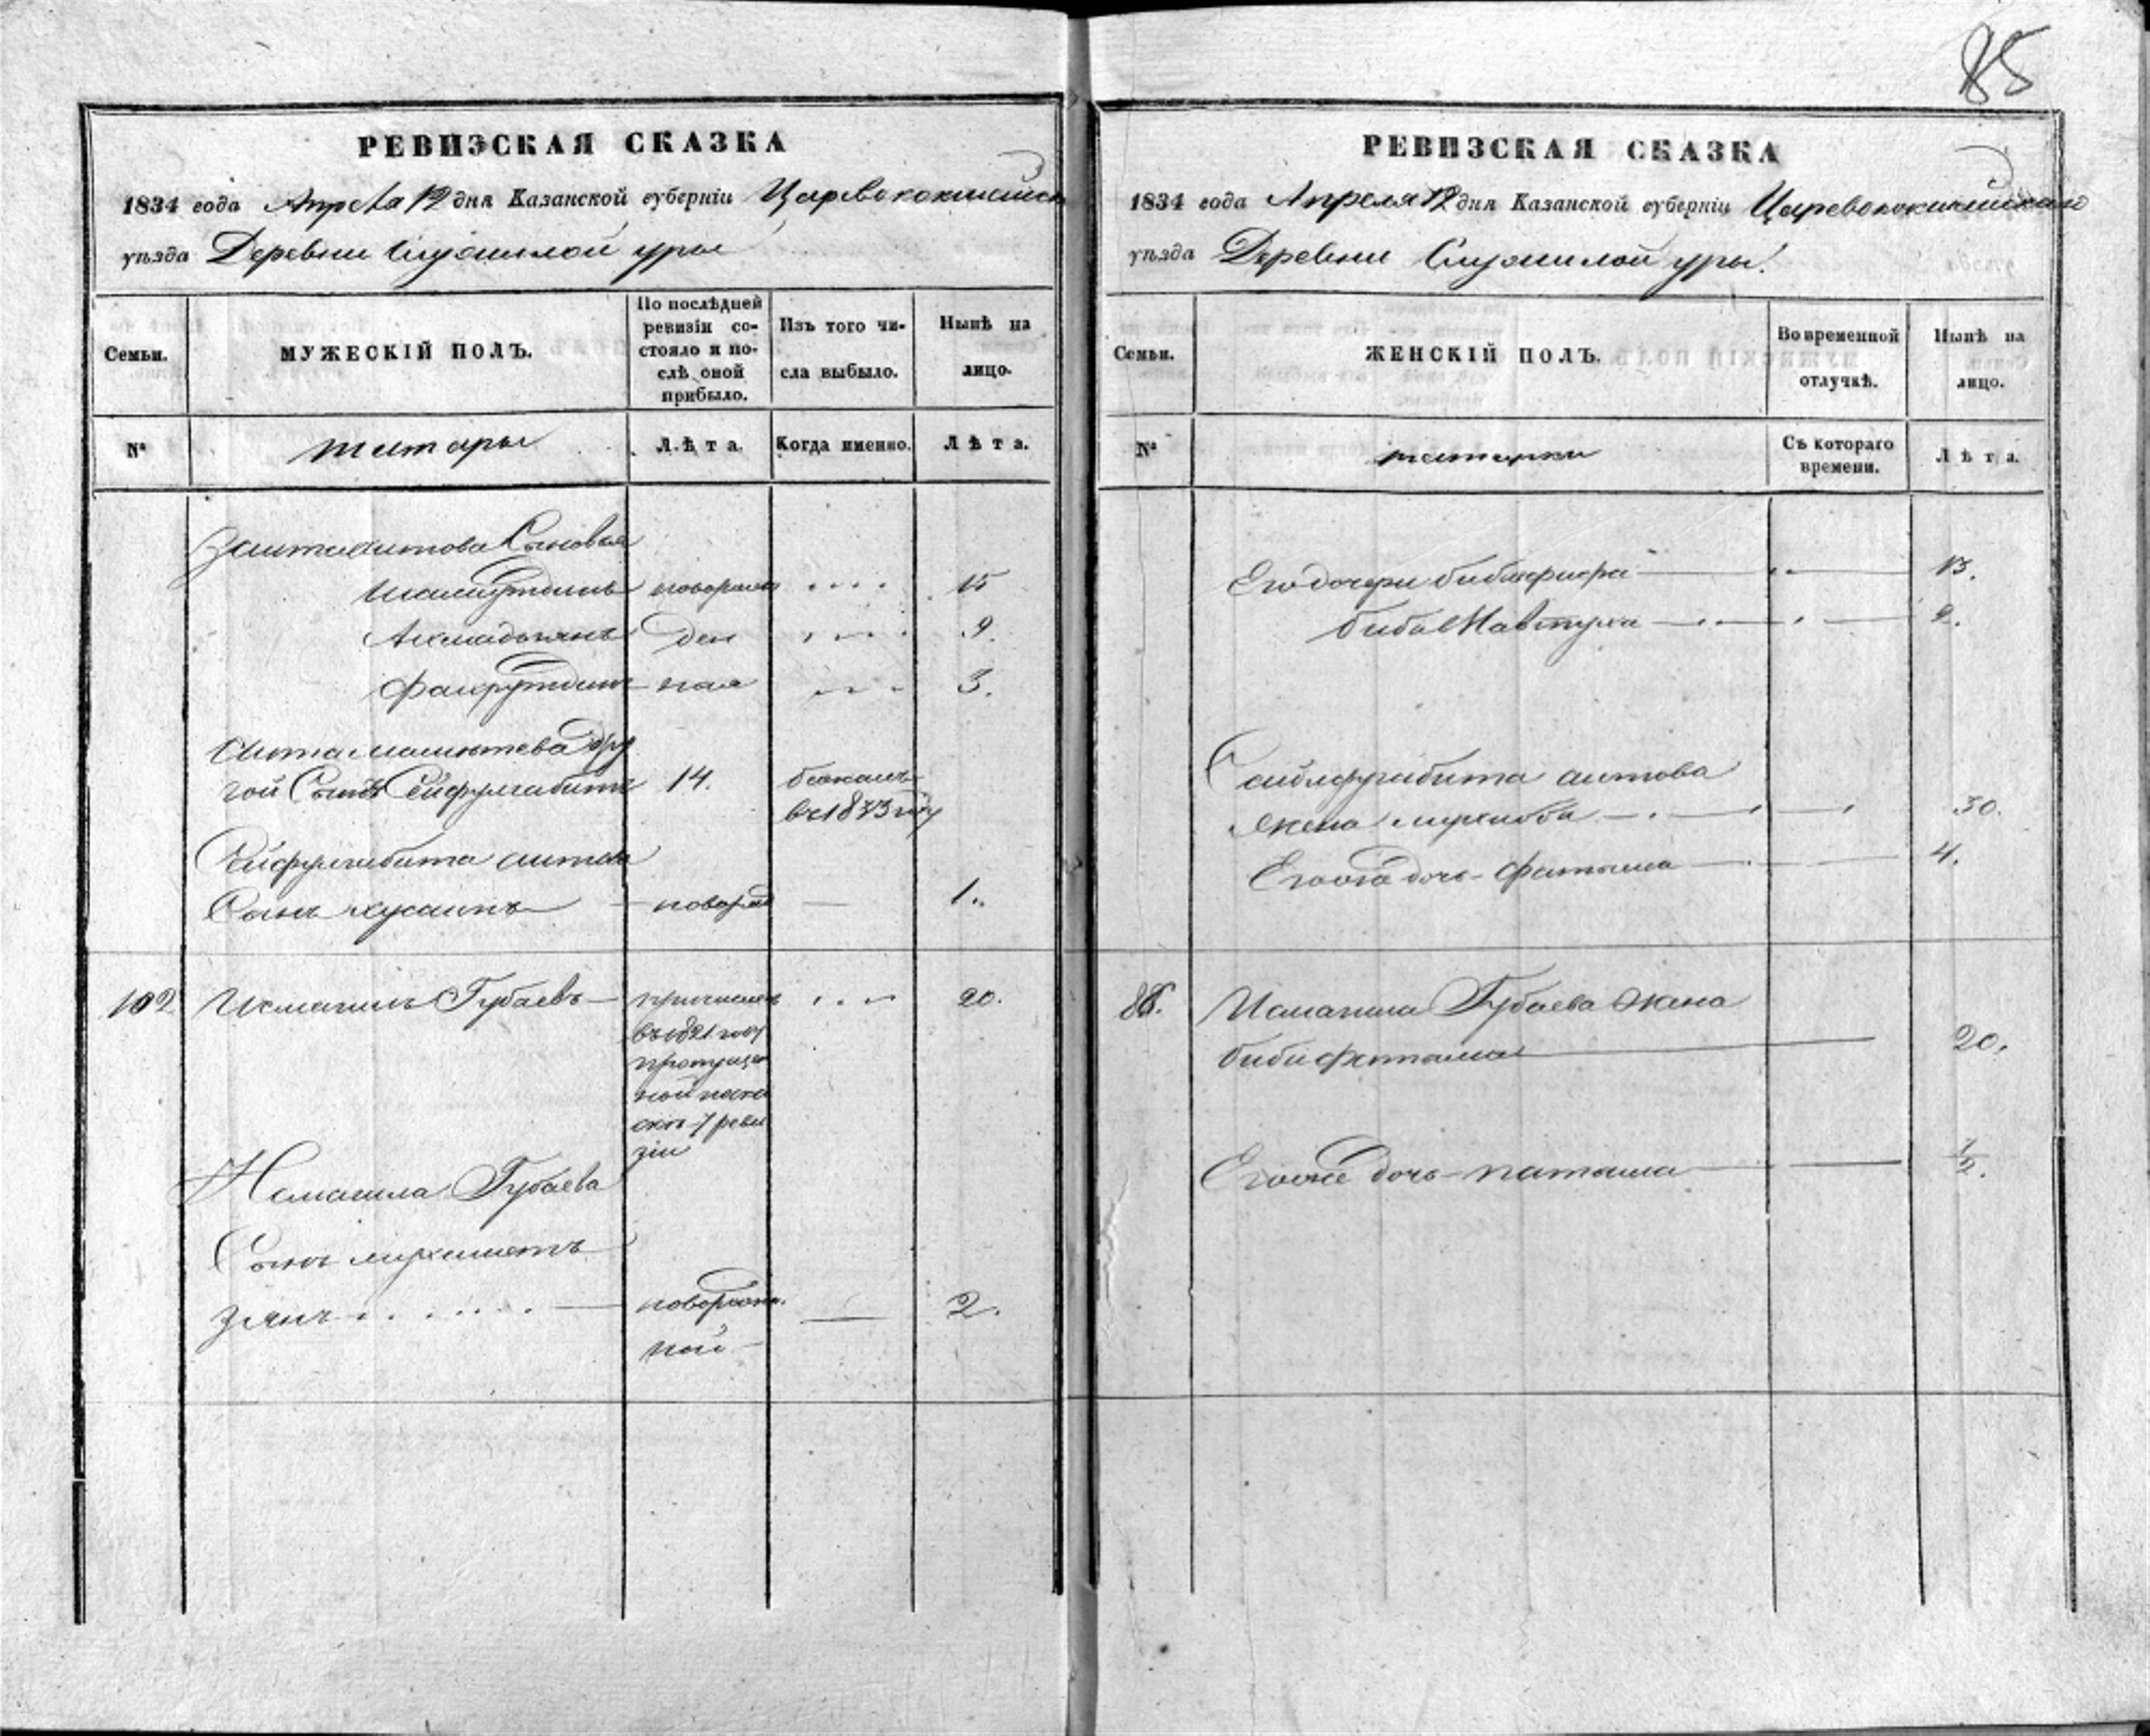 85
РЕВИЗСКАЯ СКАЗКА
1834 года Апреля 12 дня Казанской губерніи Царевококшайск
уѣзда Деревни Служилой уры
Семьи.
МУЖЕСКІЙ ПОЛЪ.
По послѣдней
ревизіи со-
стояло и по-
слѣ оной
прибыло.
Изъ того чи-
сла выбыло.
Нынѣ на
лицо.
№
татары
Лѣта.
Когда именно.
Лѣта.
Сыновья
новорож 15
Ахмадзянъ ден 9.
Фахрутдинъ ная 3.
дру
гой Сынъ Сейфулгабитъ 14.
в 1833 году
Сейфулгабита аитова
Сынъ хусаинъ новорож 1.
102 Исмагилъ Губаевъ причисленъ 20.
въ 1821 году
пропущен
ной
7 реви
зіи
Исмагила Губаева
Сынъ мухаметъ
зянъ новорожден. 2.
ной
РЕВИЗСКАЯ СКАЗКА
1834 года Апреля 12 дня Казанской губерніи Царевококшайскаго
уѣзда Деревни Служилой уры.
Семьи.
ЖЕНСКІЙ ПОЛЪ.
Во временной
отлучкѣ.
Нынѣ на
лицо.
№
татарки
Съ котораго
времени.
Лѣта.
Его дочери 13.
биби 9.
аитова
Жена 30.
Его же дочь Фатыма 4.
86. Исмагила Губаева жена
биби фатыма 20.
Его же дочь 1/2.